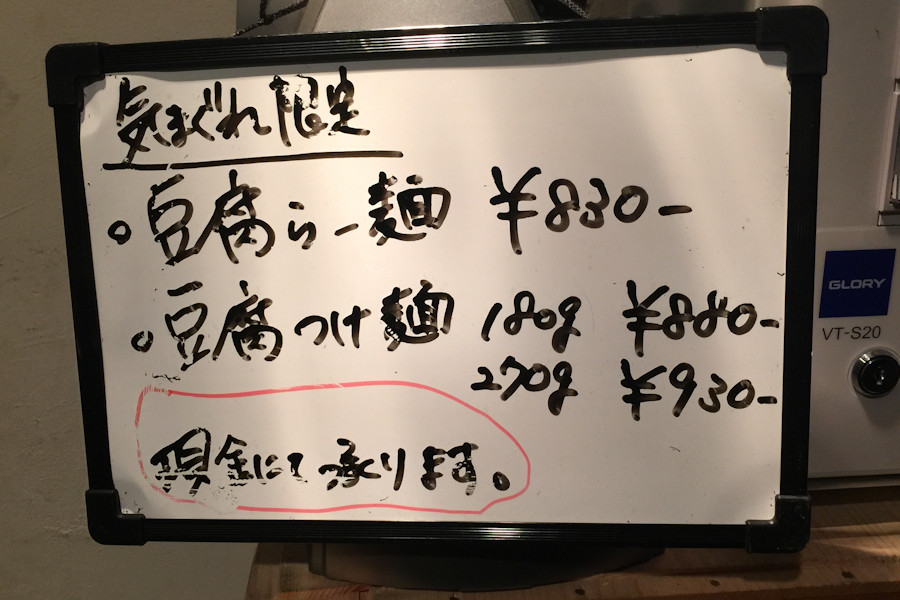 気まぐれ限定
。豆腐らー麺 ¥830-
。豆腐つけ麺 180g ¥880-
270g ¥930-
現金にて承ります。
GLORY
VT-S20